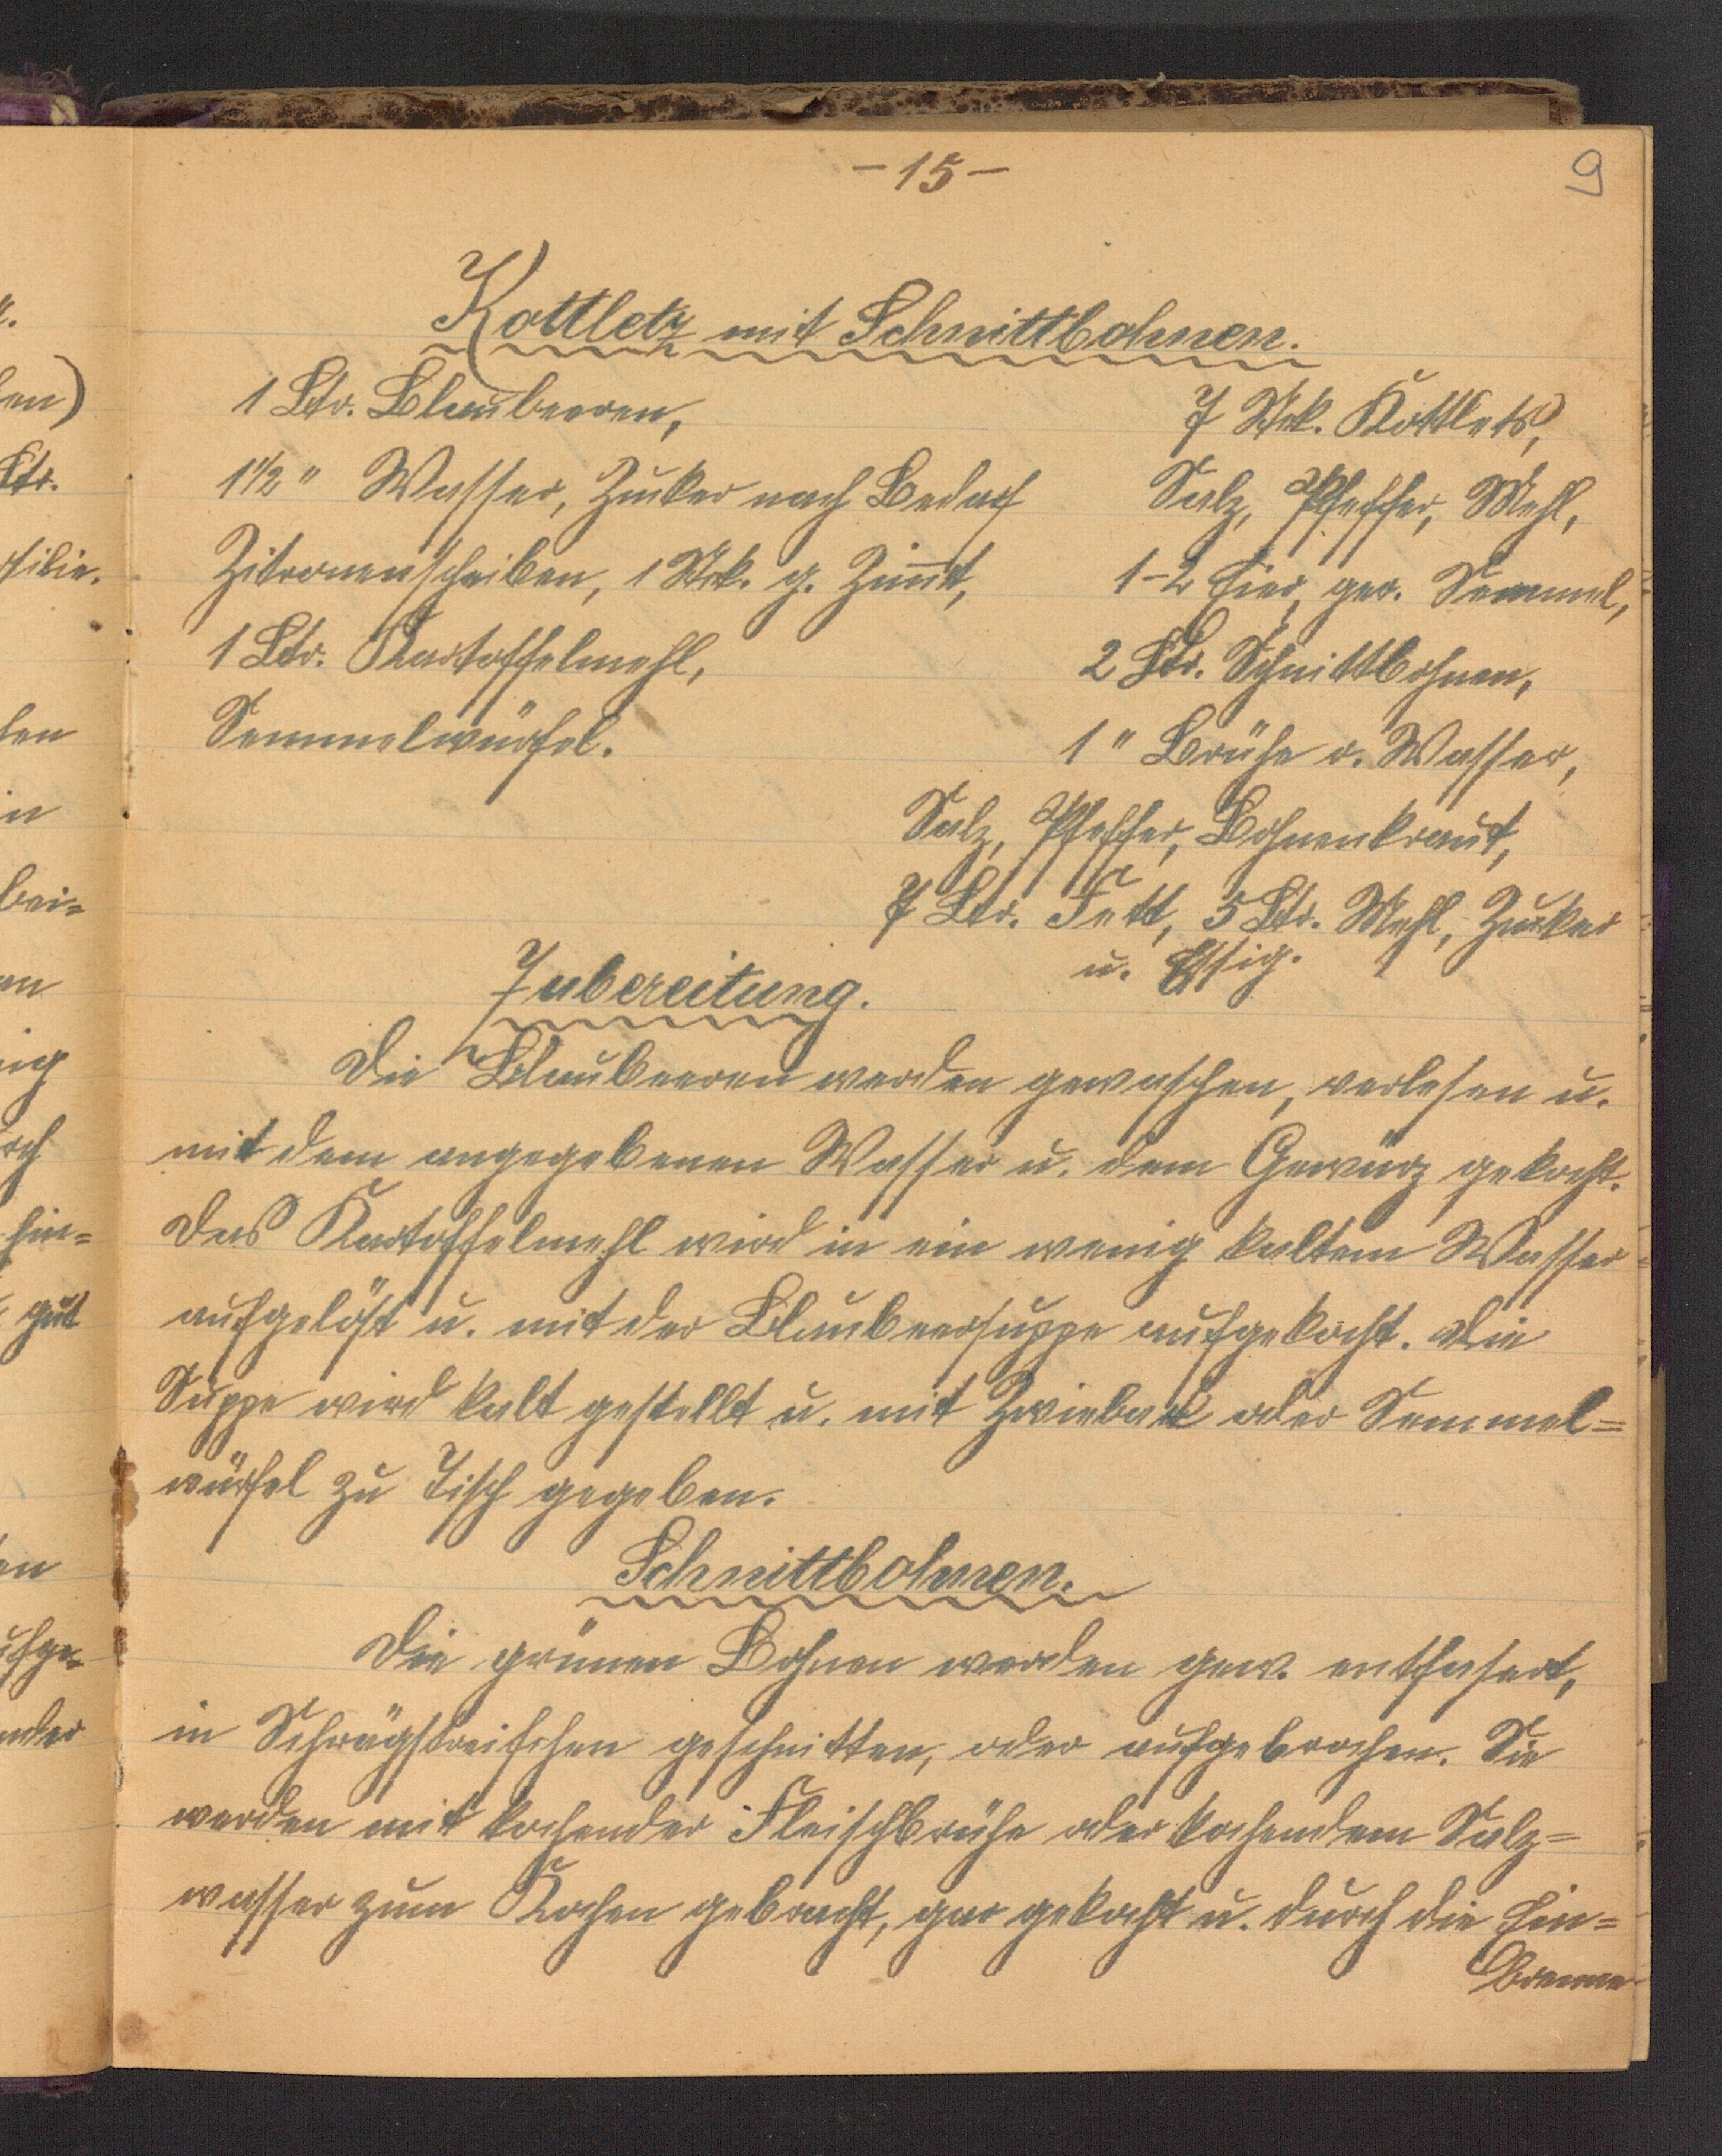 - 15 -
9
Kottletz mit Schnittbohnen.
1 Ltr. Blaubeeren,
1 1/2 " Wasser, Zucker nach Bedarf
Zitronenscheiben, 1 Stck. g. Zimt,
1 Ltr. Kartoffelmehl,
Semmelwürfel.
7 Stck. Kottlets,
Salz, Pfeffer, Mehl,
1-2 Eier, ger. Semmel,
2 Ltr. Schnittbohnen,
1 " Brühe o. Wasser,
Salz, Pfeffer, Bohnenkraut,
7 Ltr. Fett, 5 Ltr. Mehl, Zucker
u. Essig.
Zubereitung.
Die Blaubeeren werden gewaschen, verlesen u.
mit dem angegebenen Wasser u. dem Gewürz gekocht.
Das Kartoffelmehl wird in ein wenig kaltem Wasser
aufgelöst u. mit der Blaubeersuppe aufgekocht. Die
Suppe wird kalt gestellt u. mit Zwieback oder Semmel=
würfel zu Tisch gegeben.
Schnittbohnen.
Die grünen Bohnen werden gew. entfasert,
in Schrägstreifchen geschnitten, oder aufgebrochen. Sie
werden mit kochender Fleischbrühe oder kochendem Salz=
wasser zum Kochen gebracht, gar gekocht u. durch die Ein=
brenne